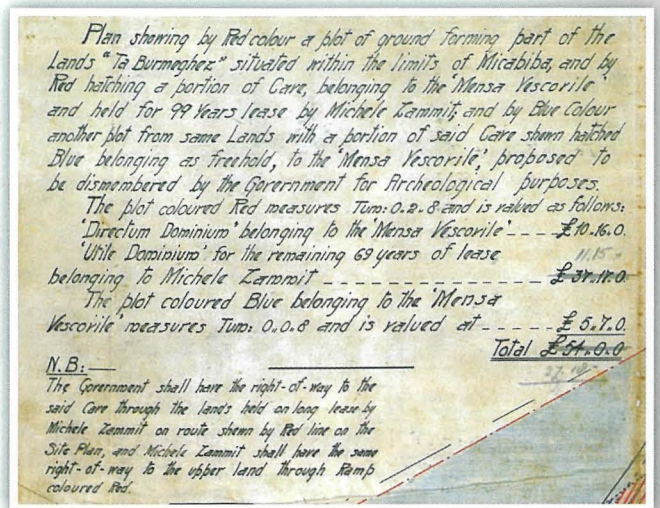 Plan showing by Red colour a plot of ground forming part of the
Lands "Ta Burmeghez" situated within the limits of Micabiba, and by
Red hatching a portion of Cave, belonging to the 'Mensa Vescovile'
and held for 99 Years lease by Michele Zammit; and by Blue Colour
another plot from same Lands with a portion of said Cave shewn hatched
Blue belonging as freehold, to the 'Mensa Vescovile', proposed to
be dismembered by the Government for Archeological purposes.
The plot coloured Red measures Tum: 0.2.8 and is valued as follows:
'Directum Dominium' belonging to the 'Mensa Vescovile' ---- £10.16.0.
'Utile Dominium' for the remaining 69 years of lease
11.15
belonging to Michele Zammit ---------------- £37.17.0
The plot coloured Blue belonging to the 'Mensa
Vescovile' measures Tum: 0..0.8 and is valued at ----- £5..7.0.
Total £54..0.0
N.B:—
The Government shall have the right-of-way to the
said Cave through the lands held on long lease by
Michele Zammit on route shewn by Red line on the
Site Plan, and Michele Zammit shall have the same
right-of-way to the upper land through Ramp
coloured Red.